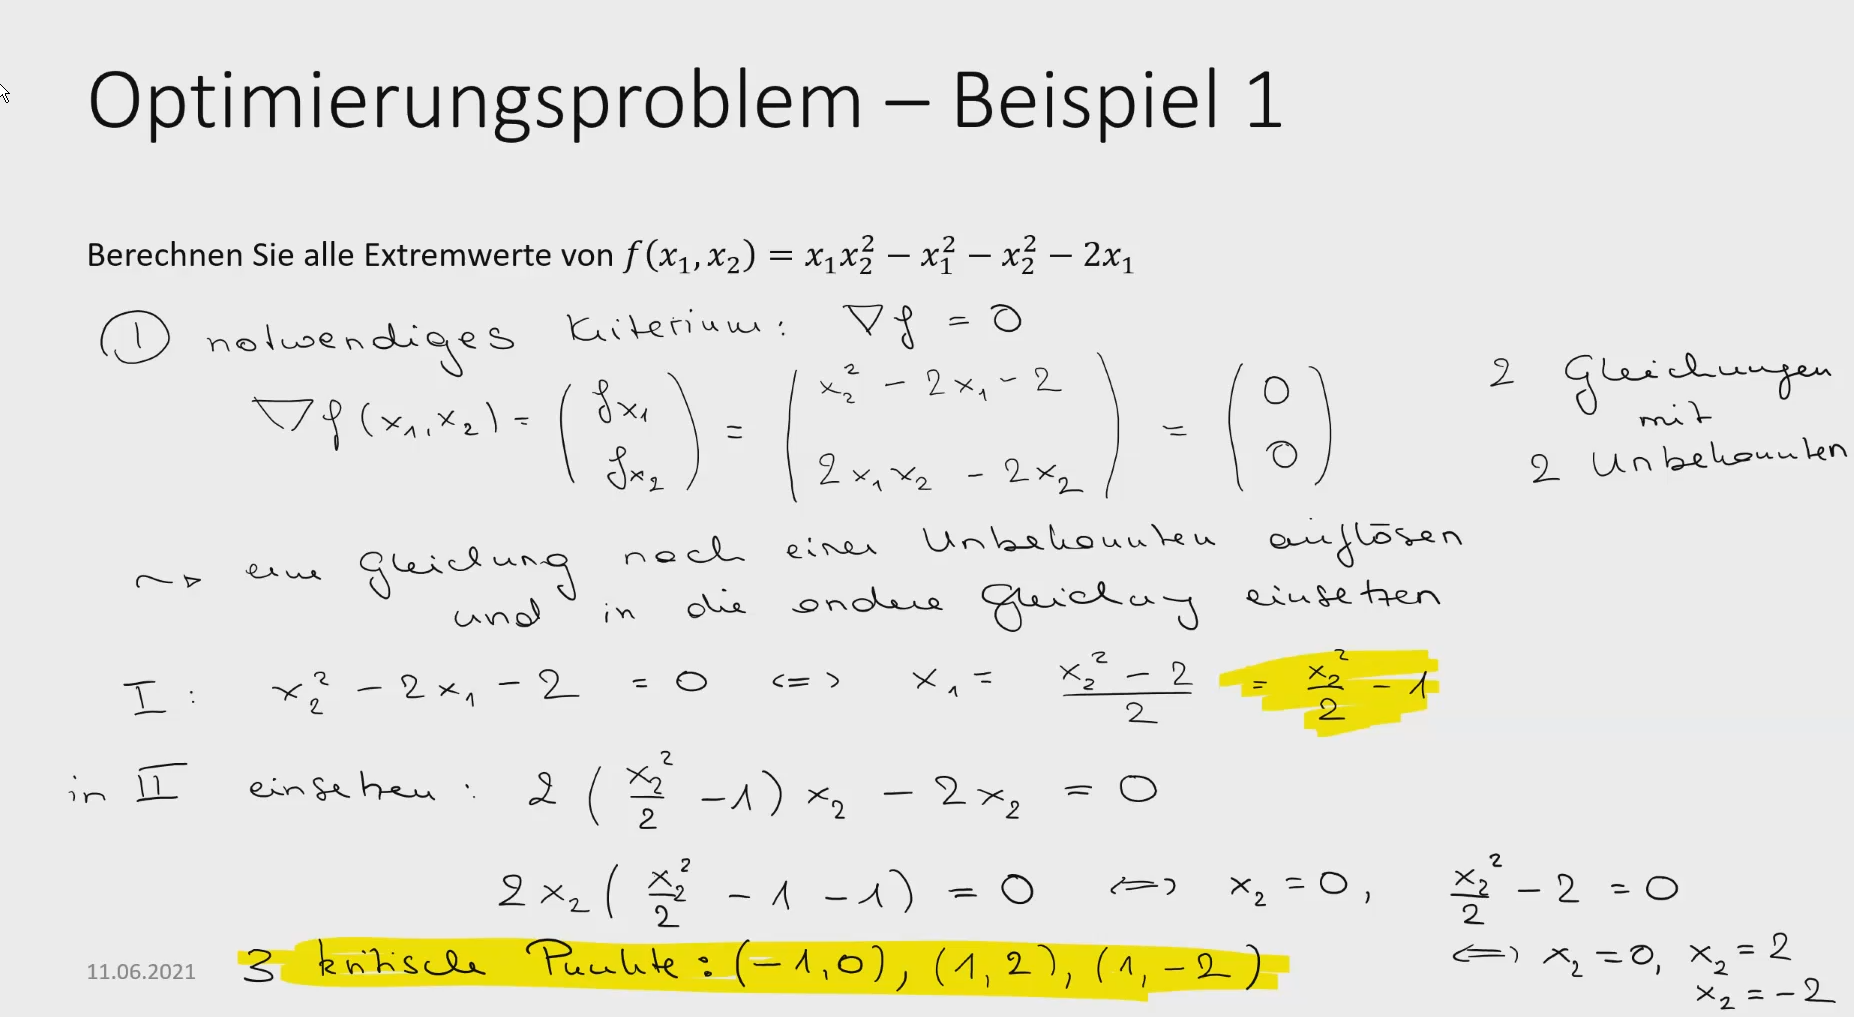 Optimierungsproblem – Beispiel 1
Berechnen Sie alle Extremwerte von f(x₁, x₂) = x₁x₂² − x₁² − x₂² − 2x₁
① notwendiges Kriterium: ∇f = 0
∇f(x₁,x₂) = (fx₁ fx₂) = (x₂² - 2x₁ - 2 2x₁x₂ - 2x₂) = (0 0)
2 Gleichungen
mit
2 Unbekannten
⤳ eine Gleichung nach einer Unbekannten auflösen
und in die andere Gleichung einsetzen
I : x₂² - 2x₁ - 2 = 0 <=> x₁ = (x₂² - 2)/2 = x₂²/2 - 1
in II einsetzen : 2 (x₂²/2 - 1) x₂ - 2x₂ = 0
2x₂ (x₂²/2 - 1 - 1) = 0 <=> x₂ = 0, x₂²/2 - 2 = 0
<=> x₂ = 0, x₂ = 2
x₂ = -2
3 kritische Punkte : (-1,0), (1,2), (1,-2)
11.06.2021